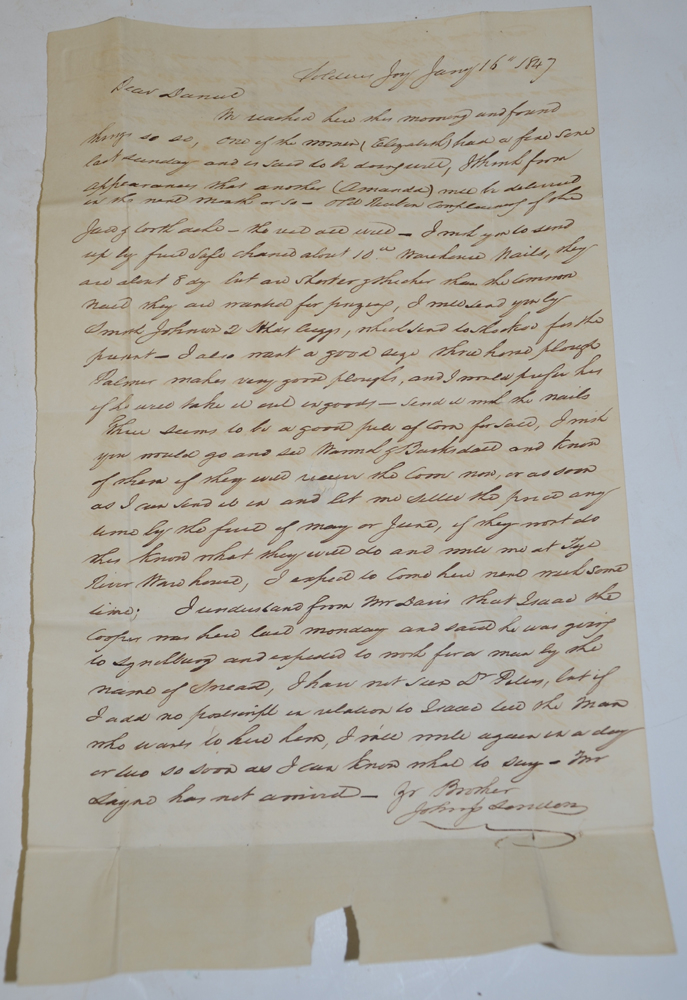 Soldiers Joy Jany 16th 1847
Dear Daniel
We reached here this morning and found
things so so, One of the women (Elizabeth) had a fine
last Sunday and is said to be doing well, I think from
appearances that another (Amanda) will be delivered
in the next month or so – Old Reuben complaining of the
Jaw & tooth ache – the rest are well – I wish you to send
up by first safe chance about 10 Warehouse Nails, they
are about 8 dy but are shorter & thicker than the common
nail they are wanted for prizing, I will send you by
Johnson 2 which send to for the
present – I also want a good size three horse plough
Palmer makes very good ploughs, and I would prefer his
if he will take it out in goods – send it with the nails
There seems to be a good of Corn for sale, I wish
you would go and see & Barksdale and know
of them if they will receive the Corn now, or as soon
as I can send it in and let me settle the price any
time by the first of May or June, if they wont do
this know what they will do and write me at Tye
River Warehouse, I expect to come here next week some
time; I understand from Mr Davis that Isaac the
Cooper was here last Monday and said he was going
to Lynchburg and expected to work for a man by the
name of , I have not seen Dr , but if
I add no postscript in relation to Isaac tell the man
who wants to hire him, I will write again in a day
or two so soon as I can know what to say – Mr
Layne has not arrived – Yr Brother
John